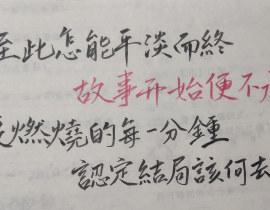 至此怎能平淡而終
故事开始便不
燃燒的每一分鍾
認定結局該何去